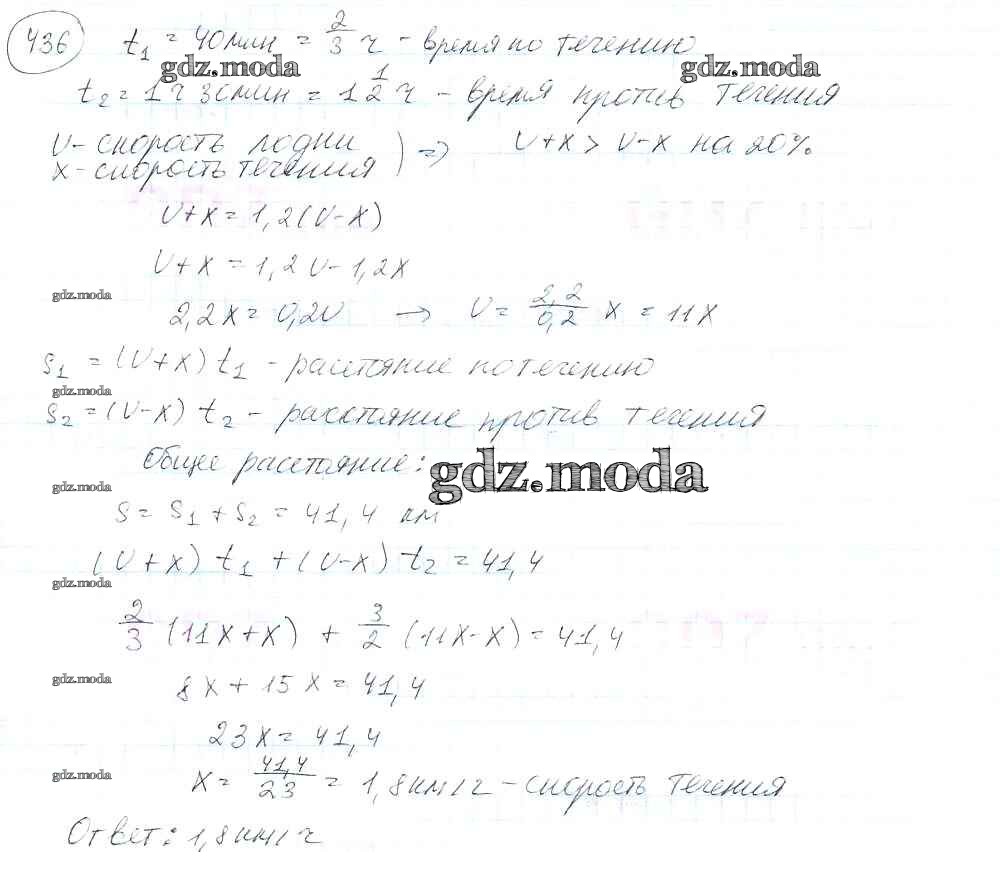 436
t₁ = 40 мин = 2/3 ч - время по течению
gdz.moda gdz.moda
t₂ = 1 ч 30 мин = 1 1/2 ч - время против течения
v - скорость лодки
x - скорость течения ) => v+x > v-x на 20%
v+x = 1,2(v-x)
v+x = 1,2v - 1,2x
gdz.moda
2,2x = 0,2v → v = 2,2/0,2 x = 11x
s₁ = (v+x) t₁ - расстояние по течению
gdz.moda
s₂ = (v-x) t₂ - расстояние против течения
Общее расстояние:
gdz.moda
gdz.moda
s = s₁ + s₂ = 41,4 км
(v+x) t₁ + (v-x) t₂ = 41,4
gdz.moda
2/3 (11x+x) + 3/2 (11x-x) = 41,4
gdz.moda
8x + 15x = 41,4
23x = 41,4
gdz.moda
x = 41,4/23 = 1,8 км/ч - скорость течения
Ответ: 1,8 км/ч